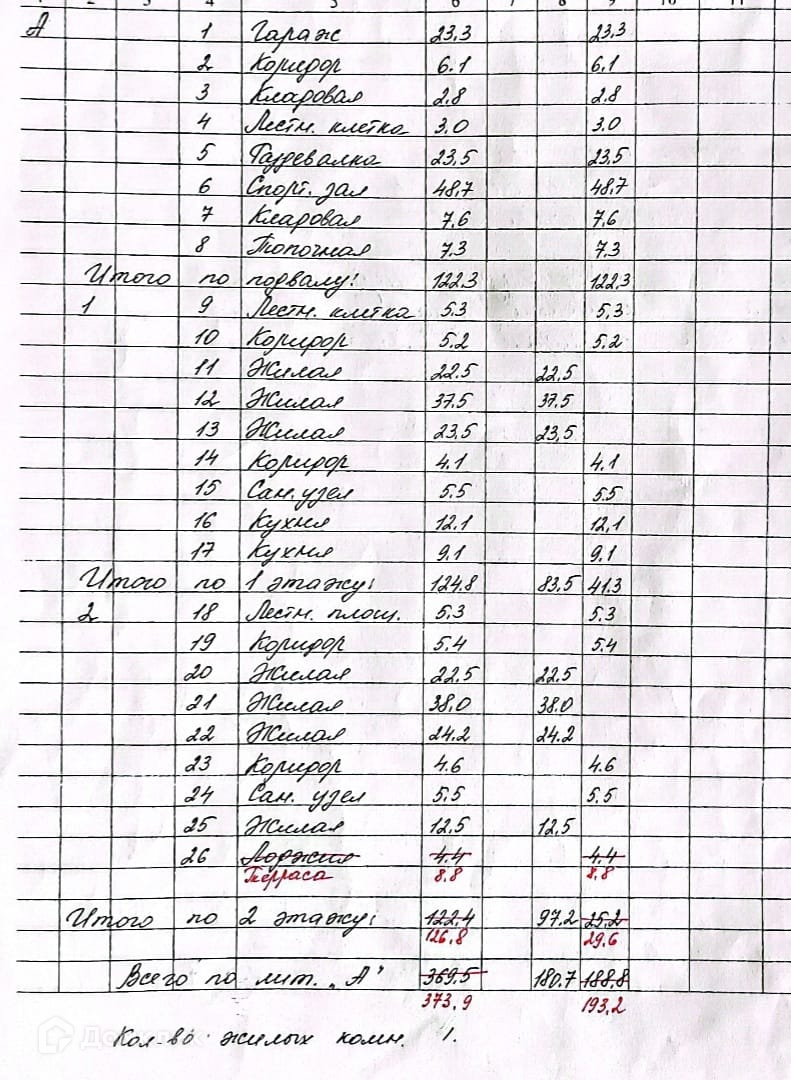 4 5 6 7 8 9 10 11
А 1 Гараж 23.3 23.3
2 Коридор 6.1 6.1
3 Кладовая 2.8 2.8
4 Лестн. клетка 3.0 3.0
5 Раздевалка 23.5 23.5
6 Спорт. зал 48.7 48.7
7 Кладовая 7.6 7.6
8 Топочная 7.3 7.3
Итого по подвалу: 122.3 122.3
1 9 Лестн. клетка 5.3 5.3
10 Коридор 5.2 5.2
11 Жилая 22.5 22.5
12 Жилая 37.5 37.5
13 Жилая 23.5 23.5
14 Коридор 4.1 4.1
15 Сан. узел 5.5 5.5
16 Кухня 12.1 12.1
17 Кухня 9.1 9.1
Итого по 1 этажу: 124.8 83.5 41.3
2 18 Лестн. площ. 5.3 5.3
19 Коридор 5.4 5.4
20 Жилая 22.5 22.5
21 Жилая 38.0 38.0
22 Жилая 24.2 24.2
23 Коридор 4.6 4.6
24 Сан. узел 5.5 5.5
25 Жилая 12.5 12.5
26 Лоджия 4.4 4.4
Терраса 8.8 8.8
Итого по 2 этажу: 122.4 97.2 25.2
126.8 29.6
Всего по лит. „А" 369.5 180.7 188.8
373.9 193.2
Кол-во жилых комн. 1.